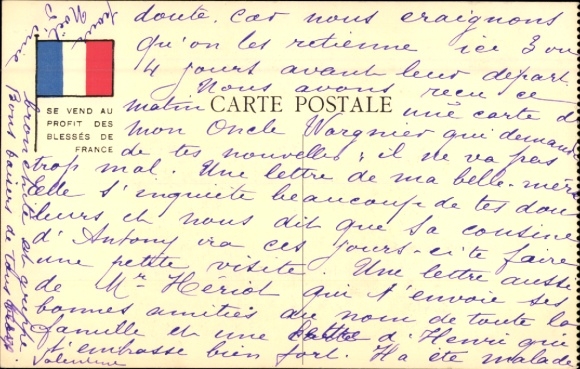 doute. Car nous craignons
qu'on les retienne ici 3 ou
4 jours avant leur départ.
Nous avons reçu ce
matin une carte de
CARTE POSTALE
SE VEND AU
PROFIT DES
BLESSÉS DE
FRANCE
mon Oncle Wargnier qui demand
de tes nouvelles; il ne va pas
trop mal. Une lettre de ma belle-mère
Elle s'inquiète beaucoup de tes dou
leurs et nous dit que sa cousine
d'Antony ira ces jours-ci te faire
une petite visite. Une lettre aussi
de Mr Heriot qui t'envoie ses
bonnes amitiés au nom de toute la
famille et une lettre d'Henri qui
t'embrasse bien fort. Ha été malade
pour
Noël
une
bronchite et grippe
Bons baisers de tous
Valentine